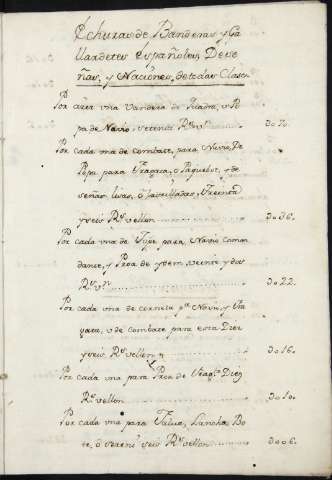 Echuras de Banderas, y Ga
llardetes Españoles, De se
ñas, y Naciones, de todas Clases
Por azer vna Vandera de
pa de Navio, setenta Rs vn
Por cada vna de Combate, para Navio, De
Popa para Fragata, o Paquebot, y de
señas lisas, o Treinta
y seis Rs. vellon ..... 036.
Por cada vna de Tope para Navio Coman
dante, y Proa de ydem, veinte y dos
Rs. vn ..... 022.
Por cada vna de corneta pa. Navio, y Fra
gata, v de combate para esta Diez
y seis Rs. vellon ..... 016.
Por cada vna para Proa de Fragta. Diez
Rs. vellon ..... 010.
Por cada vna para Falua, Lancha, Bo
te, ó seis Rs. vellon ..... 006.